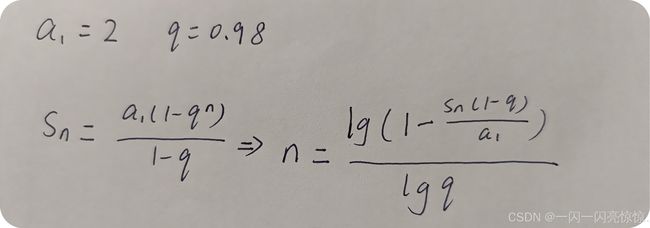 a₁ = 2 q = 0.98
Sₙ = \frac{a₁(1-qⁿ)}{1-q} ⇒ n = \frac{lg(1-\frac{Sₙ(1-q)}{a₁})}{lg q}
CSDN @一闪一闪亮惊惊.